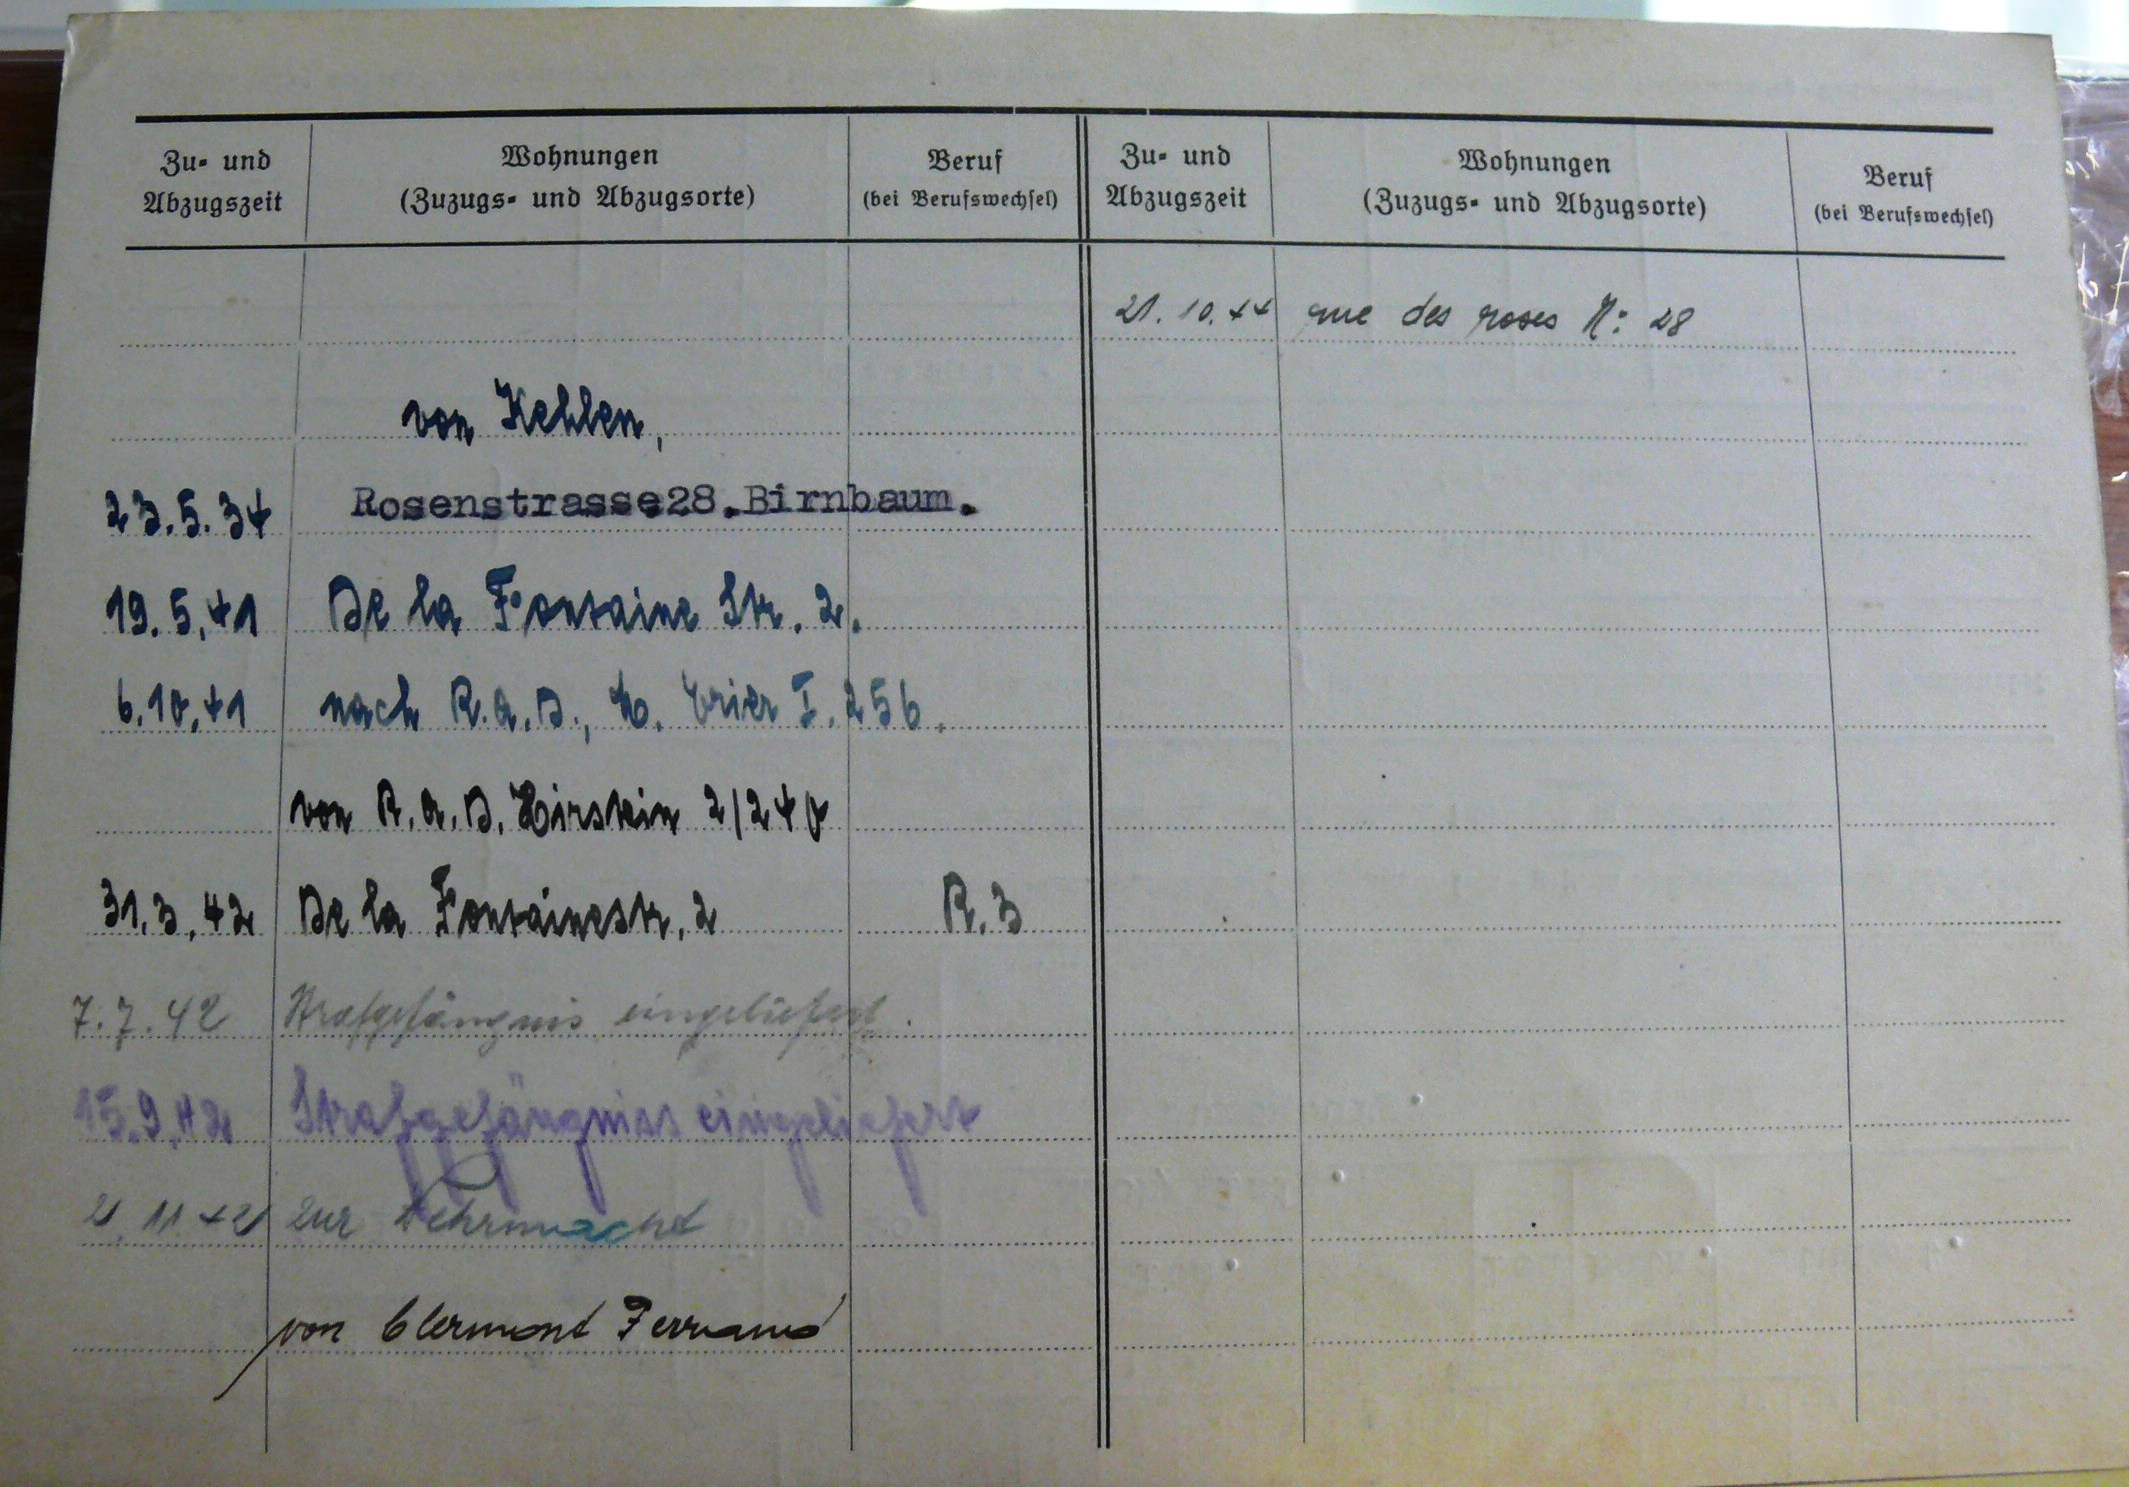 Zu- und Abzugszeit
Wohnungen (Zuzugs- und Abzugsorte)
Beruf (bei Berufswechsel)
Zu- und Abzugszeit
Wohnungen (Zuzugs- und Abzugsorte)
Beruf (bei Berufswechsel)
von Kehlen,
23.5.34 Rosenstrasse28.Birnbaum.
19.5.41 De la Fontaine Str. 2.
6.10.41 nach R.A.D., Trier I. 256.
von R.A.D. Hirstein 2/240
31.3.42 De la Fontainestr. 2 R.3
7.7.42 Strafgefängnis eingeliefert.
15.9.42 Strafgefängniss eingeliefert
11 42 zur Wehrmacht
von Clermont Ferrand
21.10.44 rue des roses N: 28